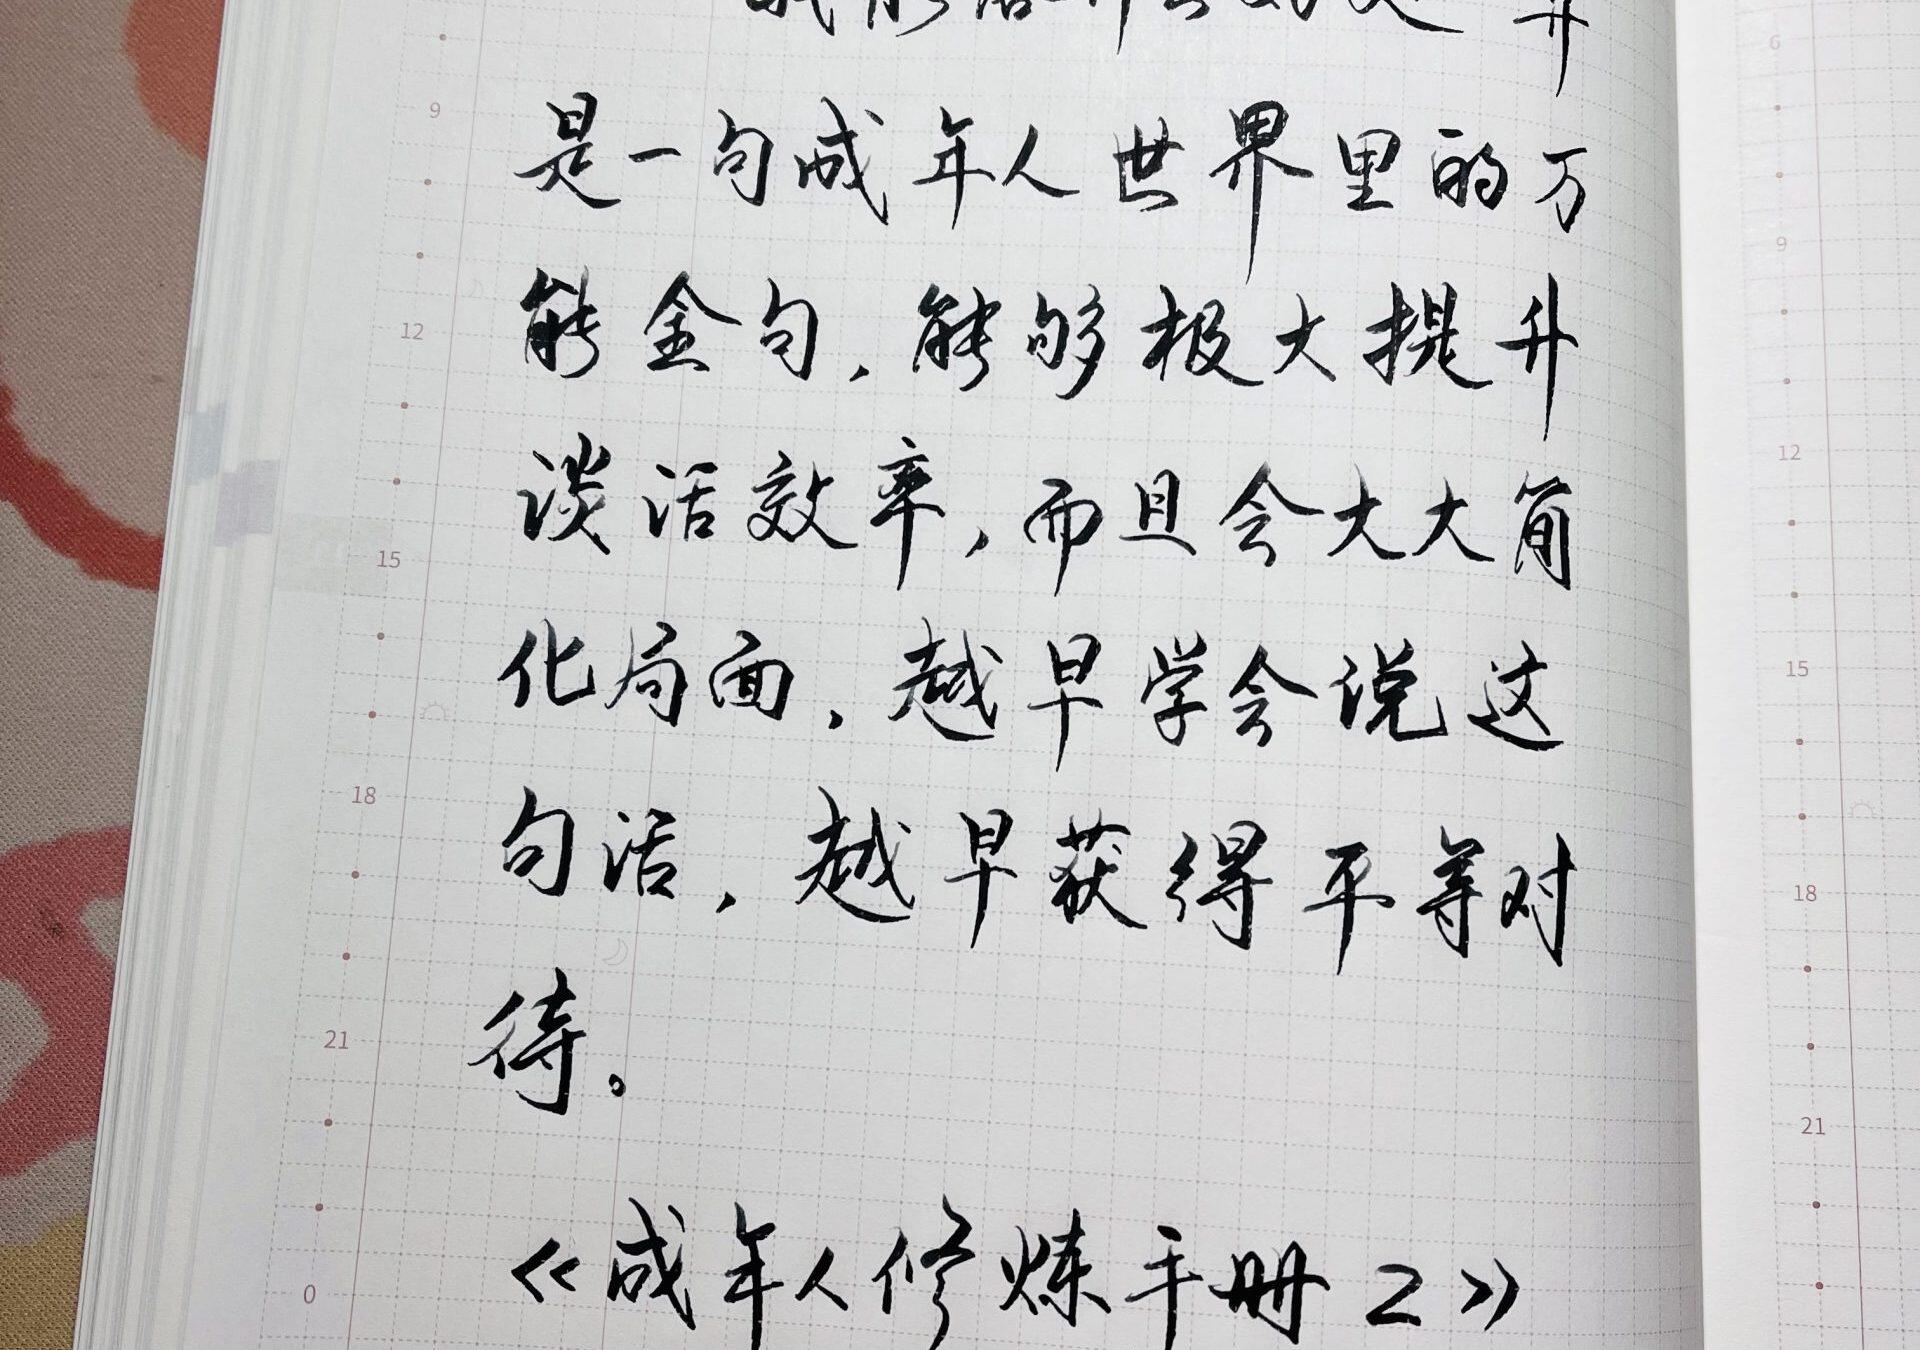 是一句成年人世界里的万
能金句，能够极大提升
谈话效率，而且会大大简
化局面，越早学会说这
句话，越早获得平等对
待。
《成年人修炼手册2》
9
12
15
18
21
0
6
9
12
15
18
21